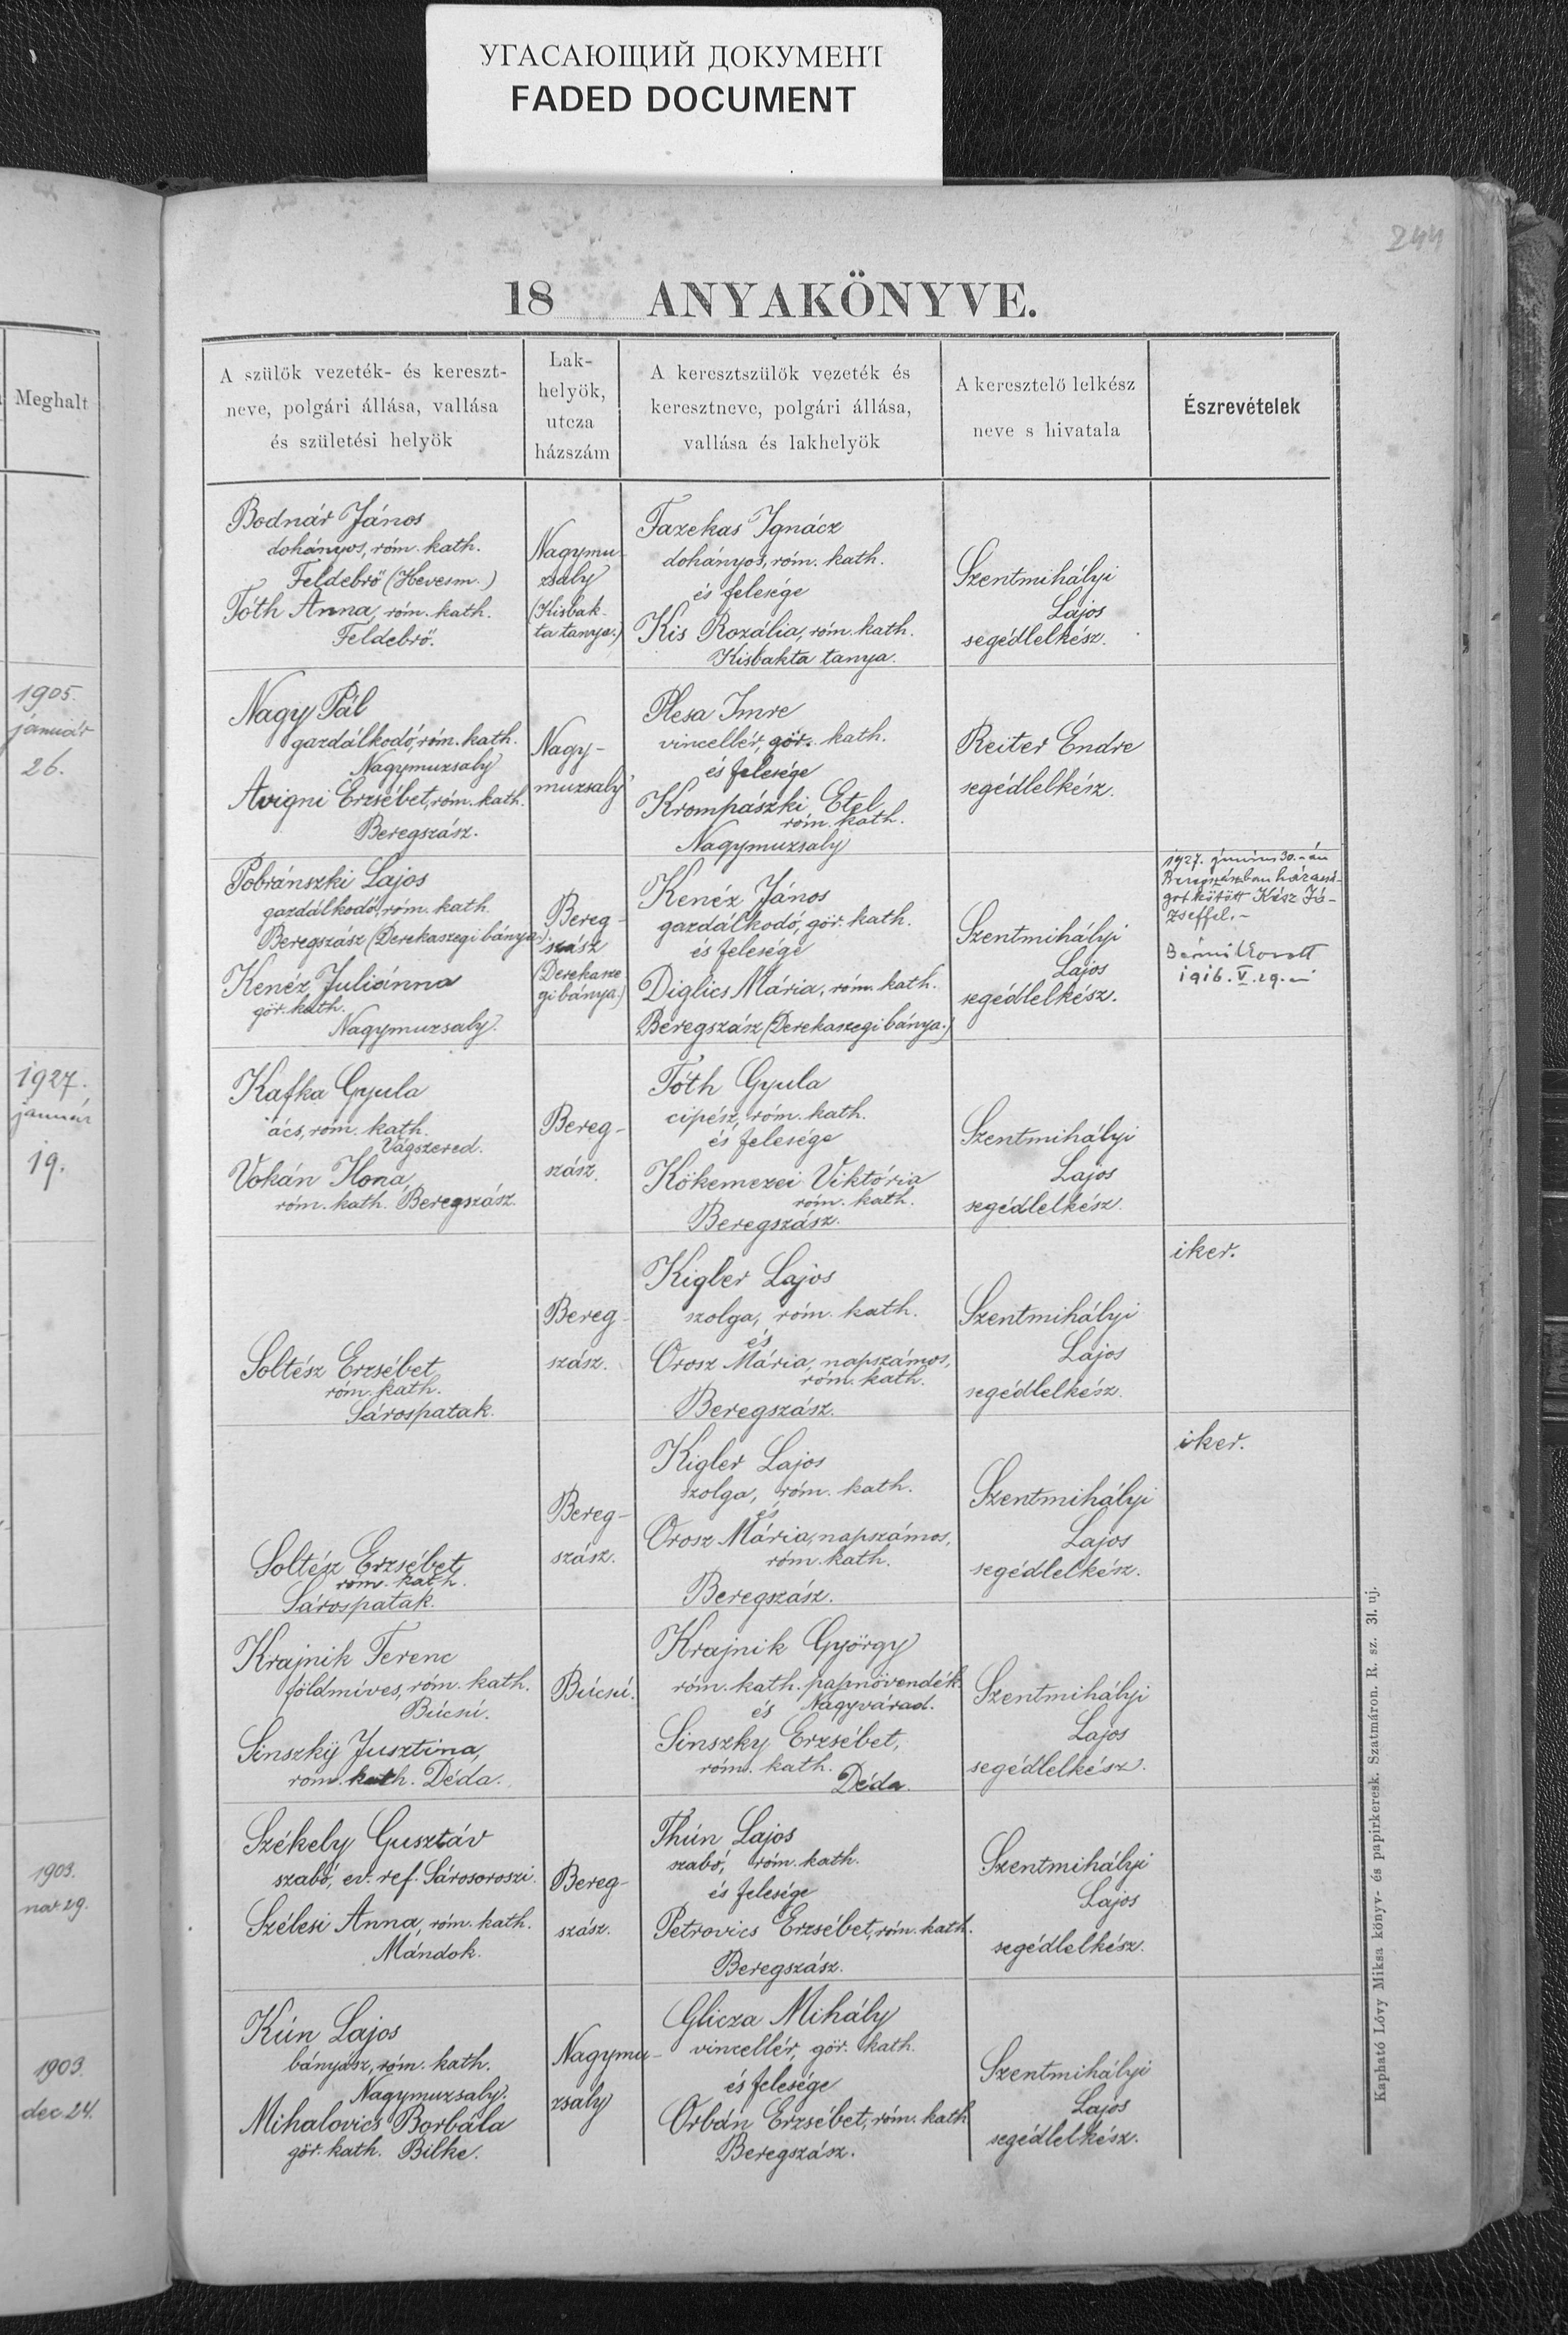 УГАСАЮЩИЙ ДОКУМЕНТ
FADED DOCUMENT
244
18 ANYAKÖNYVE.
Meghalt
1905.
január
26.
1927.
január
19.
1903.
nov 29.
1903.
dec 24.
A szülők vezeték- és kereszt-
neve, polgári állása, vallása
és születési helyök
Lak-
helyök,
utcza
házszám
A keresztszülők vezeték és
keresztneve, polgári állása,
vallása és lakhelyök
A keresztelő lelkész
neve s hivatala
Észrevételek
Bodnár János
dohányos, róm. kath.
Feldebrő (Hevesm.)
Tóth Anna, róm. kath.
Feldebrő.
Nagymu-
zsaly
(Kisbak-
ta tanya.)
Fazekas Ignácz
dohányos, róm. kath.
és felesége
Kis Rozália, róm. kath.
Kisbakta tanya.
Szentmihályi
Lajos
segédlelkész.
Nagy Pál
gazdálkodó, róm. kath.
Nagymuzsaly
Avigni Erzsébet, róm. kath.
Beregszász.
Nagy-
muzsaly
Plesa Imre
vincellér, gör. kath.
és felesége
Krompászki Etel
róm. kath.
Nagymuzsaly
Reiter Endre
segédlelkész.
Pobránszki Lajos
gazdálkodó, róm. kath.
Beregszász (Derekaszegi bánya.)
Kenéz Juliánna
gör. kath.
Nagymuzsaly.
Bereg-
szász
(Derekasze
gi bánya.)
Kenéz János
gazdálkodó, gör. kath.
és felesége
Diglics Mária, róm. kath.
Beregszász (Derekaszegi bánya.)
Szentmihályi
Lajos
segédlelkész.
1927. június 30.-án
Beregszászban házassá-
got kötött Kész Jó-
zseffel.-
1916. V. 29.
Kafka Gyula
ács, róm. kath.
Vágszered.
Vokán Ilona,
róm. kath. Beregszász.
Bereg-
szász.
Tóth Gyula
cipész, róm. kath.
és felesége
Kökemezei Viktória
róm. kath.
Beregszász.
Szentmihályi
Lajos
segédlelkész.
Soltész Erzsébet
róm. kath.
Sárospatak.
Bereg-
szász.
Kigler Lajos
szolga, róm. kath.
és
Orosz Mária, napszámos,
róm. kath.
Beregszász.
Szentmihályi
Lajos
segédlelkész.
iker.
Soltész Erzsébet
róm. kath.
Sárospatak.
Bereg-
szász.
Kigler Lajos
szolga, róm. kath.
és
Orosz Mária, napszámos,
róm. kath.
Beregszász.
Szentmihályi
Lajos
segédlelkész.
iker.
Krajnik Ferenc
földmíves, róm. kath.
Búcsú.
Sinszky Jusztina,
róm. kath. Déda.
Búcsú.
Krajnik György
róm. kath. papnövendék.
és Nagyvárad.
Sinszky Erzsébet,
róm. kath.
Déda.
Szentmihályi
Lajos
segédlelkész.
Székely Gusztáv
szabó, ev. ref. Sárosoroszi.
Szélesi Anna, róm. kath.
Mándok.
Bereg-
szász.
Thún Lajos
szabó, róm. kath.
és felesége
Petrovics Erzsébet, róm. kath.
Beregszász.
Szentmihályi
Lajos
segédlelkész.
Kún Lajos
bányász, róm. kath.
Nagymuzsaly.
Mihalovics Borbála
gör. kath. Bilke.
Nagymu-
zsaly
Glicza Mihály
vincellér, gör. kath.
és felesége
Orbán Erzsébet, róm. kath
Beregszász.
Szentmihályi
Lajos
segédlelkész.
Kapható Lóvy Miksa könyv- és papirkeresk. Szatmáron. R. sz. 31. uj.